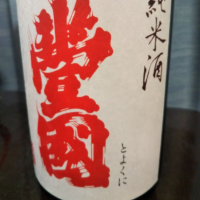 純米酒
豊國
とよくに